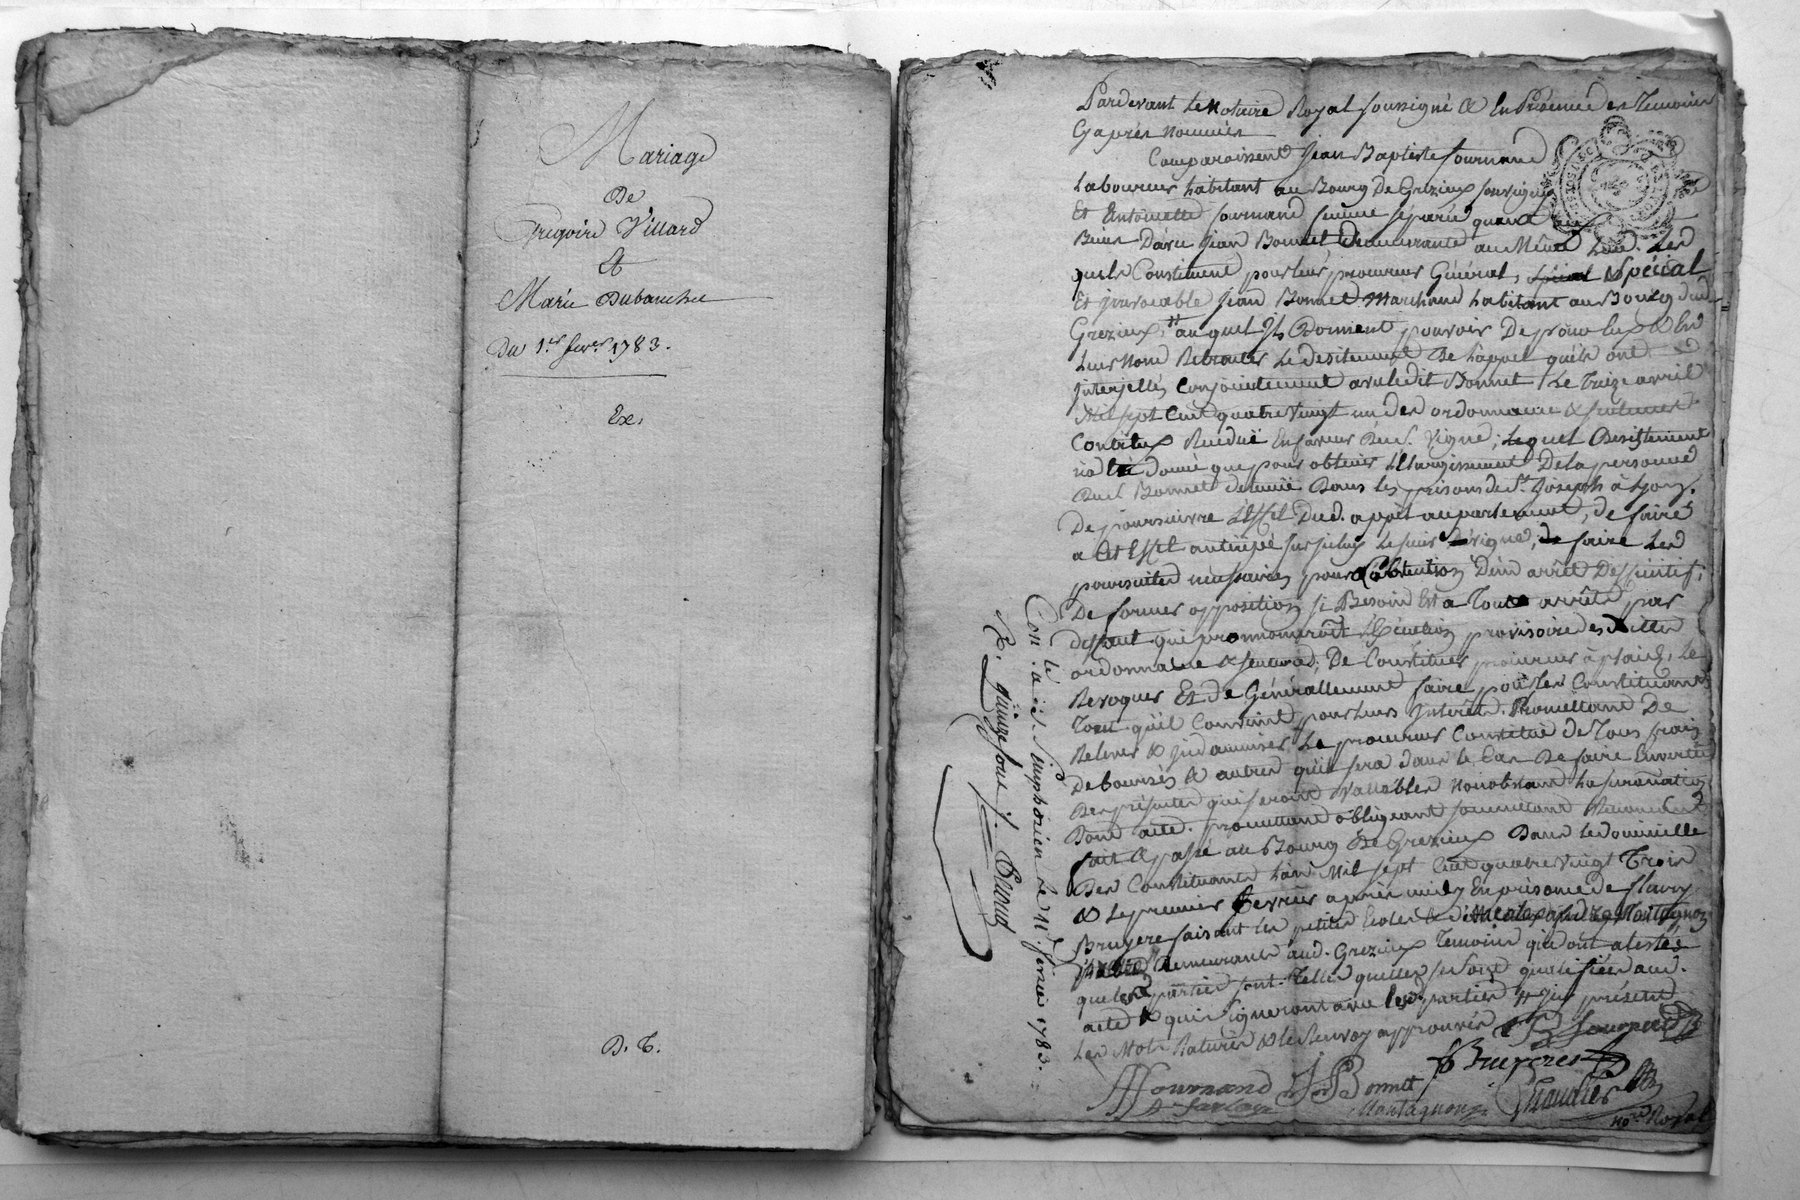 Mariage
De
Gregoire Villard
&
Marie Dubanchet
Du 1.er fevr 1783.
Ex,
D. T.
Pardevant le Notaire Royal soussigné & En Présence des Temoins
Cy après Nommés
Comparaissent Jean Baptiste fournand
Laboureur habitant au Bourg De Grezieux
Et Antoinette fournand femme séparée quant
Biens Davec Jean Bonnet Demeurante au Même Lieu. Les
quels Constituent pour leur procureur Général, spécial & Spécial
Et irrevocable Jean Bonnet Marchand habitant au Bourg dud.
Grezieux, auquel Ils Donnent pouvoir De pour Eux & En
Leurs Noms Retracter Le desistement De L'appel quils ont
Interjettés Conjointement avec ledit Bonnet Le Treize avril
Mil sept Cent quatre vingt un des ordonnance & sentence
Rendüe En faveur Vigne; Lequel Desistement
donné que pour obtenir L'Elargissement De la personne
Dud. Bonnet detenu Dans les prisons de St. Joseph à Lyon.
De poursuivre L'Effet Dud. appel au parlement, de faire
a Cet Effet anticipé sur Iceluy Le sieur Vigne, de faire Les
poursuites necessaires pour L'obtention D'un arrêt Deffinitif,
De former opposition si Besoin Est a Tout arrêts par
deffaut qui prononceroit L'Exécution provisoire desdittes
ordonnance & sentence; De Constituer procureur à plaids, Le
Revoquer Et de Généralement faire pour les Constituants
Tout qu'il Convient pour leurs Interêt. Promettant De
Relever & Indamniser Le procureur Constitué de Tous frais
Deboursés & autres qu'il sera dans le Cas De faire En vertu
Des présentes qui seront Vallables Nonobstant La surannation
Dont acte. promettant obligeant soumettant Renonçant
fait & passé au Bourg De Grezieux Dans le domicille
Des Constituants L'an Mil sept Cent quatre vingt Trois
& Le premier fevrier après midy En présence de fleury
Bruyere faisant les petites Ecoles & Montagnon
Demeurants aud. Grezieux Temoins qui ont attesté
que les parties sont Telles quelles se sont qualifiées aud.
acte & qui signeront avec les d. parties
Les Mots Raturés & le Renvoy approuvés JB fournand
Bruyeres
A fournand JB Bonnet
Montagnon
no.re Royal
Con. le a St. Simphorien le 11. fevrier 1783.
R. quinze sous